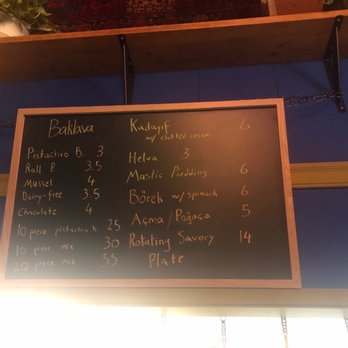 Baklava
Pistachio B. 3
Roll P. 3.5
Mussel 4
Dairy-free 3.5
Chocolate 4
10 piece pistachio b. 25
10 piece mix 30
20 piece mix 55
Kadayıf 6
w/ clotted cream
Helva 3
Mastic Pudding 6
Börek w/ spinach 6
Açma/Poğaça 5
Rotating Savory 14
Plate